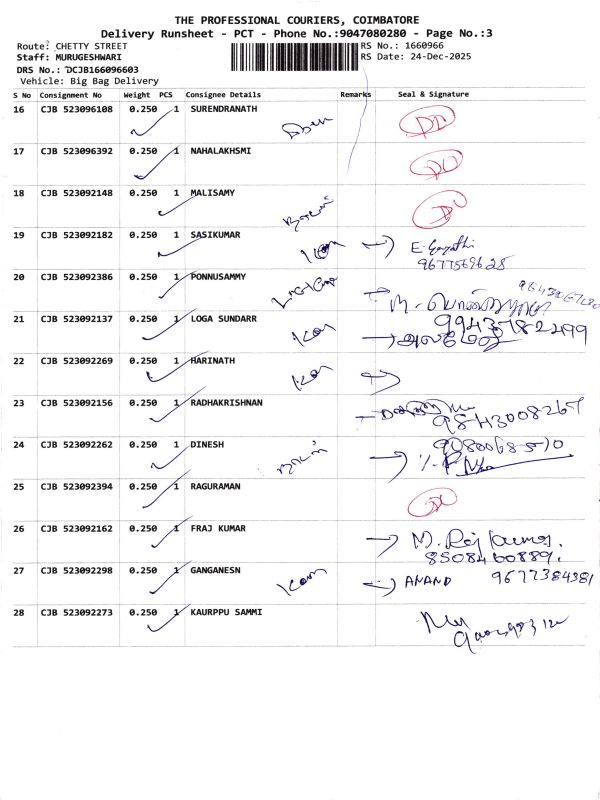 THE PROFESSIONAL COURIERS, COIMBATORE
Delivery Runsheet - PCT - Phone No.:9047080280 - Page No.:3
Route: CHETTY STREET RS No.: 1660966
Staff: MURUGESHWARI RS Date: 24-Dec-2025
DRS No.: DCJB166096603
Vehicle: Big Bag Delivery
S No Consignment No Weight PCS Consignee Details Remarks Seal & Signature
16 CJB 523096108 0.250 1 SURENDRANATH
17 CJB 523096392 0.250 1 NAHALAKHSMI
18 CJB 523092148 0.250 1 MALISAMY
19 CJB 523092182 0.250 1 SASIKUMAR
9677569628
20 CJB 523092386 0.250 1 PONNUSAMMY
21 CJB 523092137 0.250 1 LOGA SUNDARR
22 CJB 523092269 0.250 1 HARINATH
23 CJB 523092156 0.250 1 RADHAKRISHNAN
9843008267
24 CJB 523092262 0.250 1 DINESH
25 CJB 523092394 0.250 1 RAGURAMAN
26 CJB 523092162 0.250 1 FRAJ KUMAR M. Raj kumar.
8508460889.
27 CJB 523092298 0.250 1 GANGANESN ANAND 9677384381
28 CJB 523092273 0.250 1 KAURPPU SAMMI